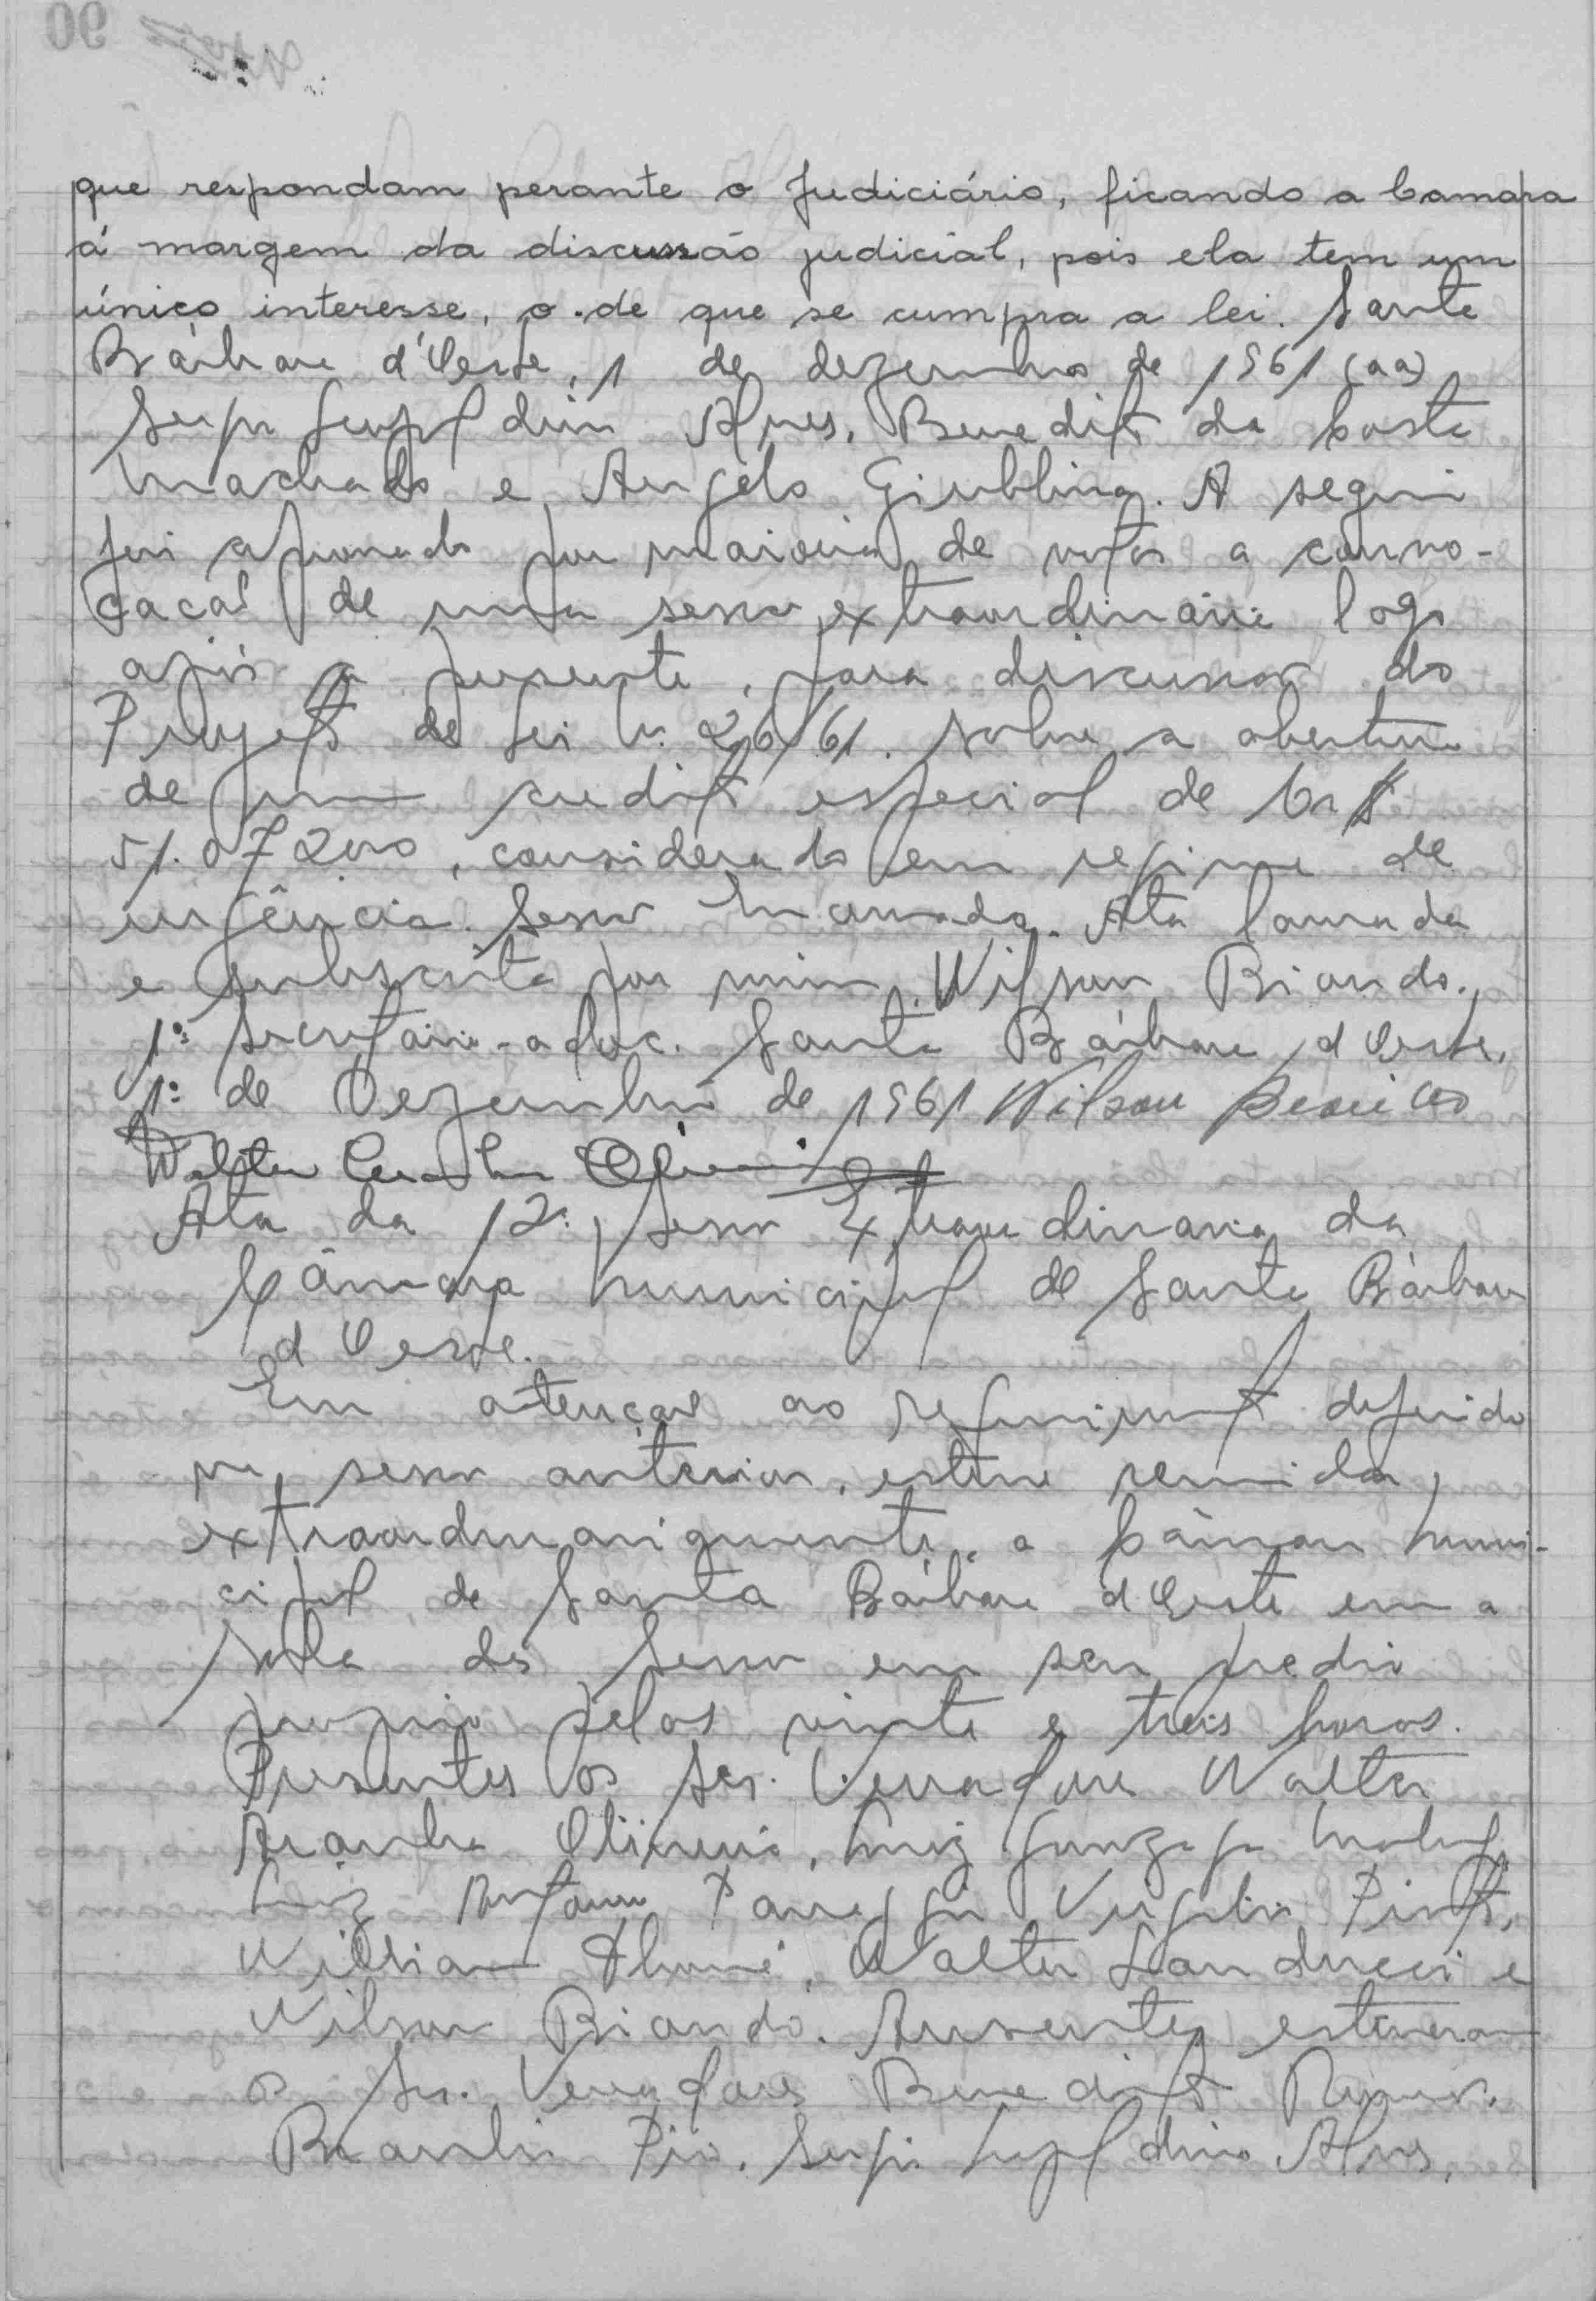 que respondam perante o Judiciário, ficando a Camara
á margem da discussão judicial, pois ela tem um
único interesse, o de que se cumpra a lei. Santa
Bárbara d'Oeste, 1 de dezembro de 1961 (aa)
Alves, Benedito da Costa
Machado e Angelo Giubbina. A seguir
foi aprovada por maioria de votos a convo-
cação de uma sessão extraordinária logo
após a presente, para discussão do
Projeto de Lei n. 26/61. sobre a abertura
de um credito especial de Cr$
51.072,00, considerado em regime de
urgência. Sessão encerrada. Ata lavrada
e subscrita por mim, Wilson Riando.
1º Secretário-adoc. Santa Bárbara d Oeste,
1º de Dezembro de 1961 Wilson
Walter
Ata da 12ª Sessão Extraordinaria da
Câmara Municipal de Santa Bárbara
d Oeste.
Em atenção ao requerimento deferido
na sessão anterior, esteve reunida,
extraordinariamente, a Câmara Muni-
cipal de Santa Bárbara d'Oeste em a
sala de Sessão em seu predio
proprio pelas vinte e três horas.
Presentes os Srs. Vereadores Walter
Aranha Oliveira, Luiz Gonzaga
Luiz Virgilio Pinto,
William, Walter Landucci e
Wilson Riando. Ausentes estiveram
os Srs. Vereadores Benedito
Braulio Pio, Alves,